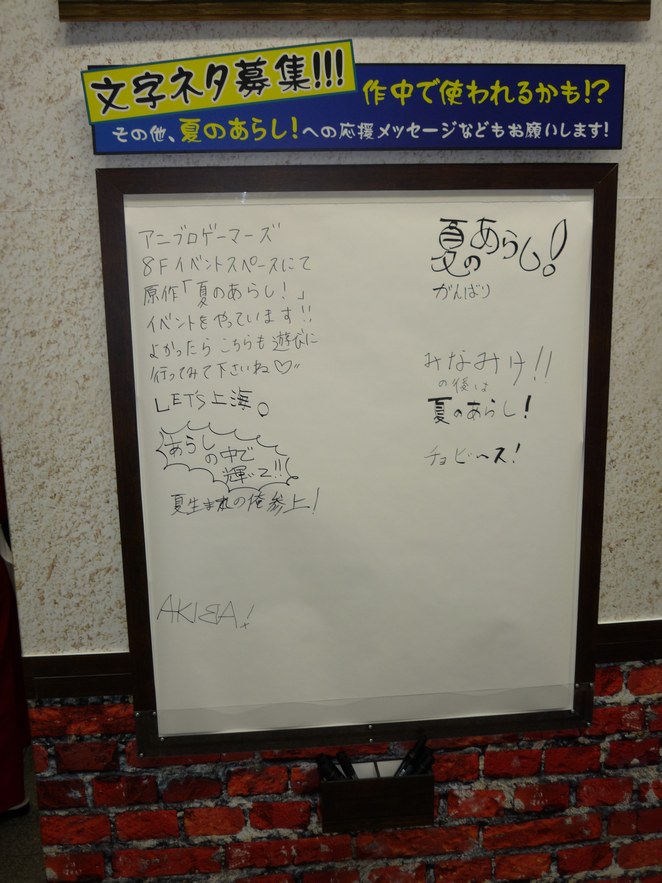 文字ネタ募集!!!
作中で使われるかも!?
その他、夏のあらし!への応援メッセージなどもお願いします!
アニブロゲーマーズ
8Fイベントスペースにて
原作「夏のあらし!」
イベントをやっています!!
よかったら こちらも遊びに
行ってみて下さいね♡"
LET'S上海。
あらし
の中で
輝いて!!
夏生まれの俺参上!
AKIBA!
夏のあらし!
がんばり
みなみけ!!
の後は
夏のあらし!
チョビ〜ス!